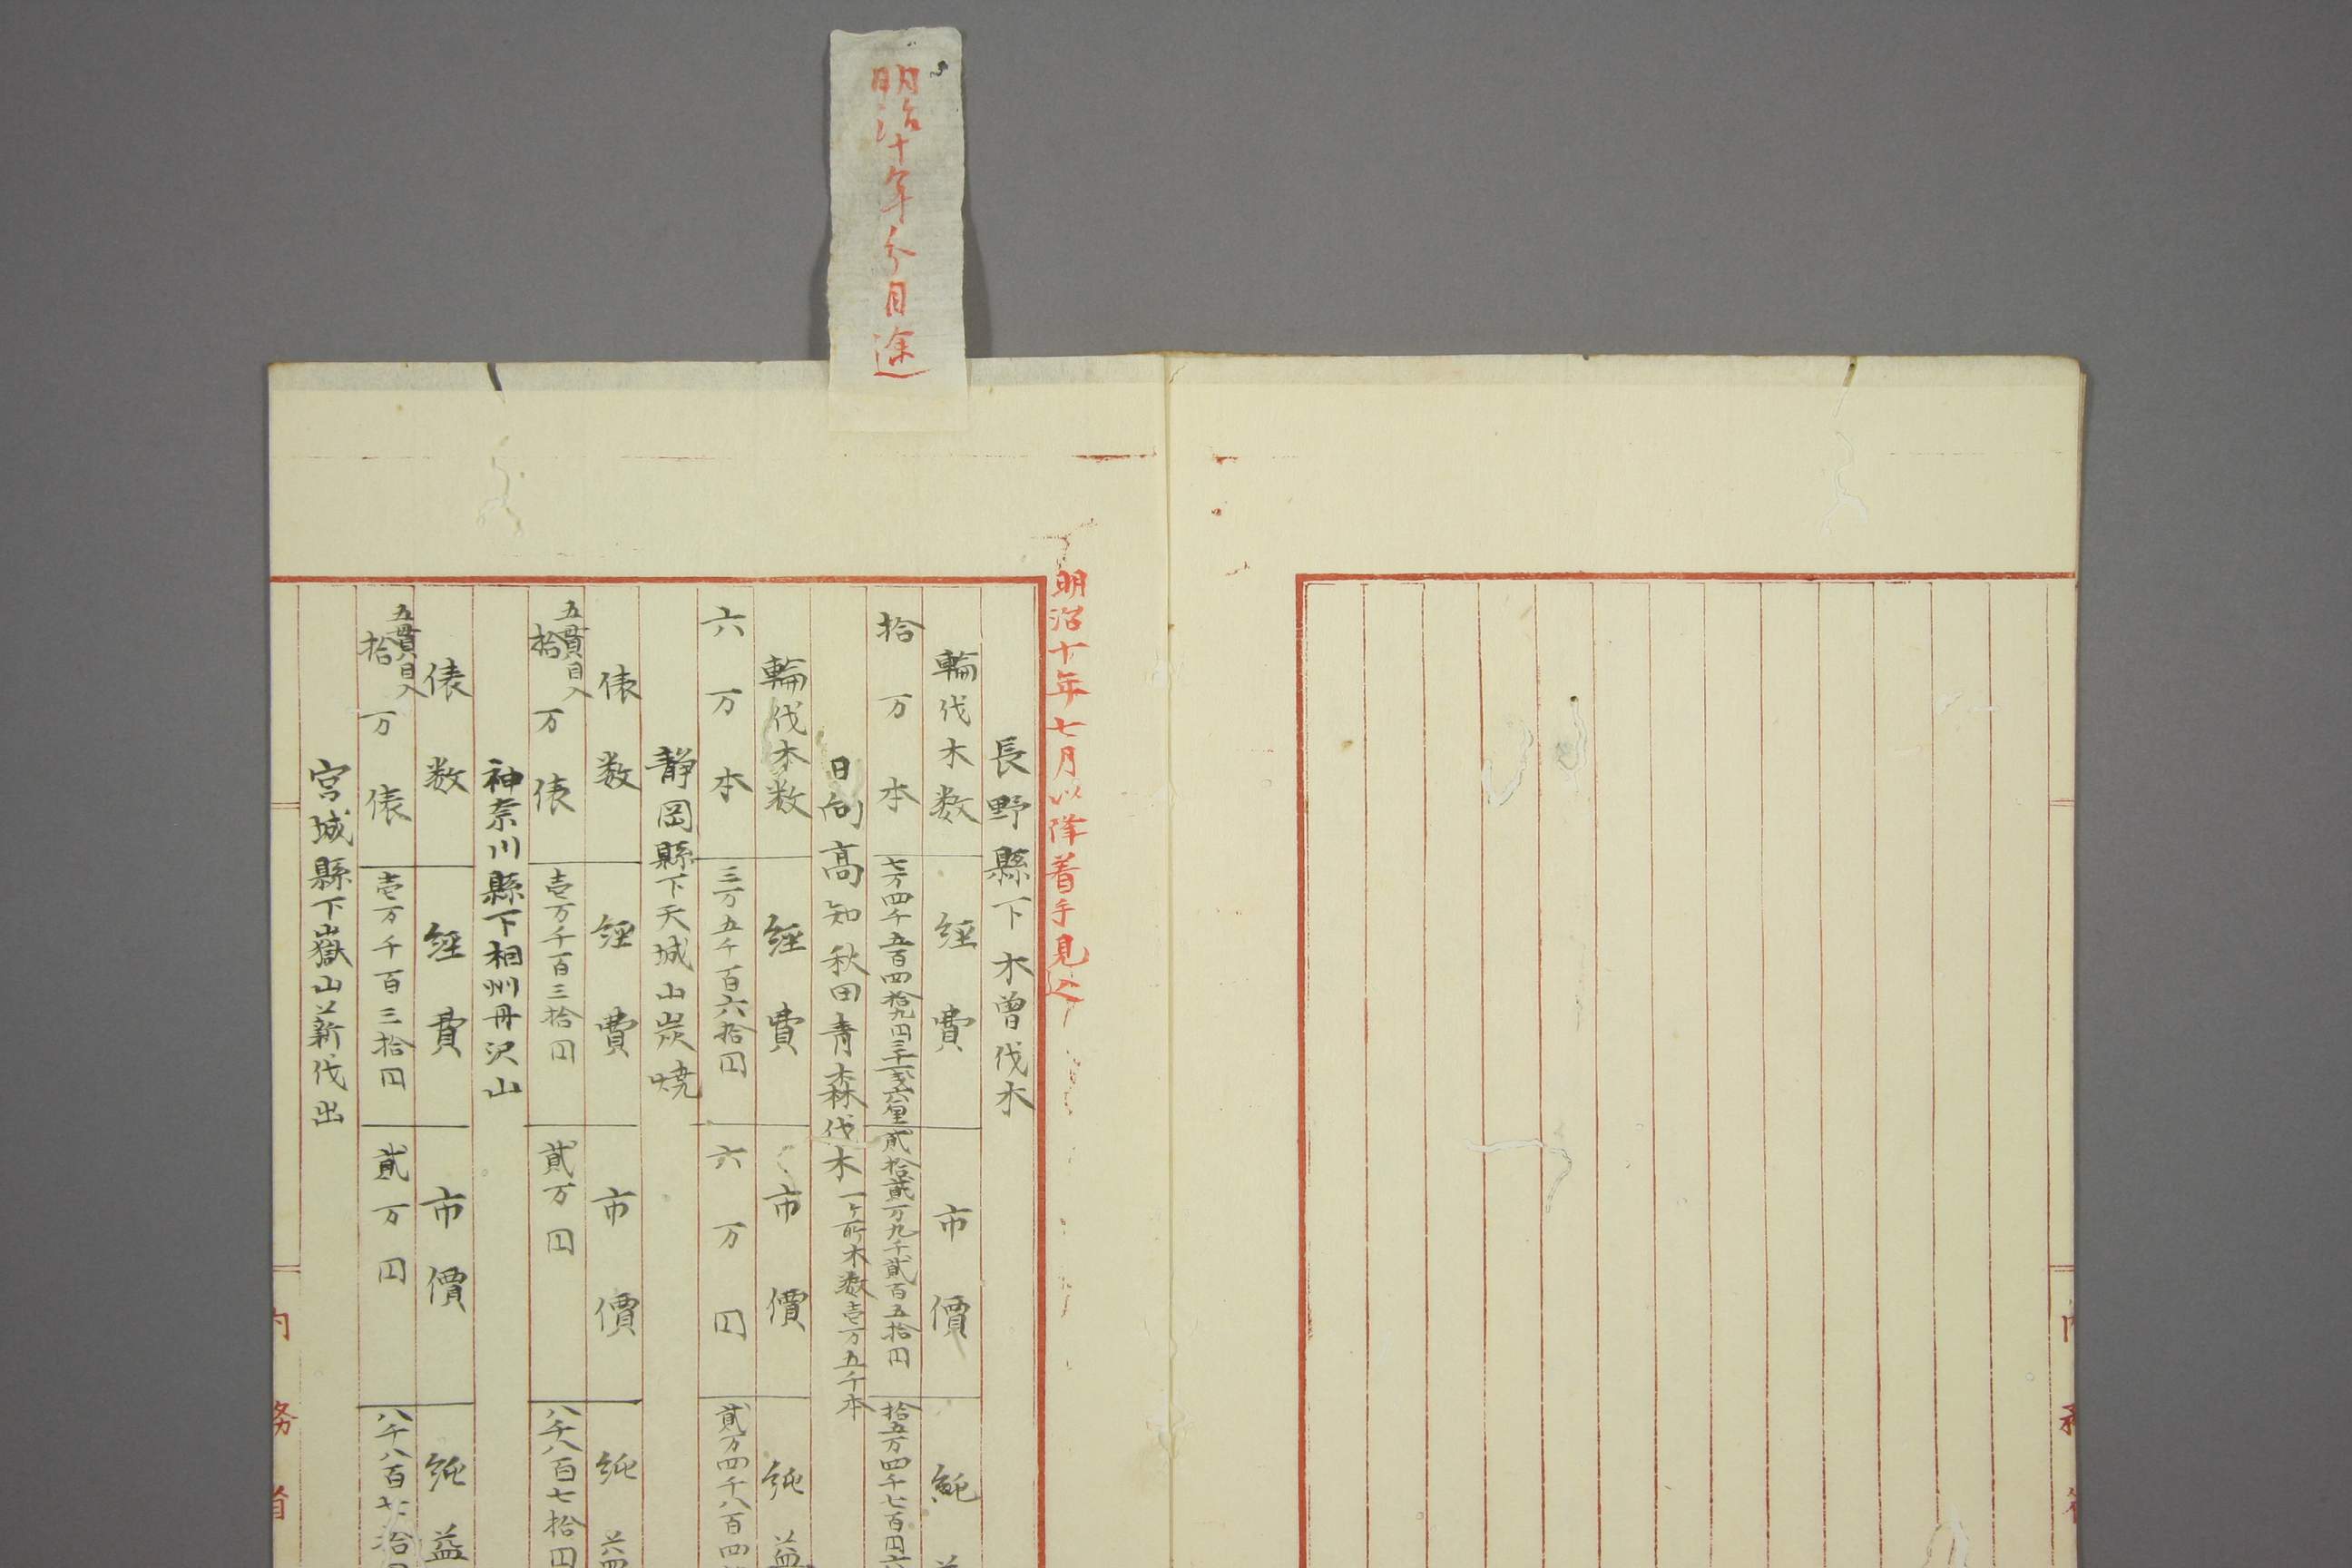 明治十年分目途
明治十年七月以降着手見込
長野縣下木曽伐木
輪伐木数 經費 市價 純益
拾万本 七万四千五百四拾九円三十 六厘 貳拾貳万九千貳百五拾円 拾五万四千七百円六
日向高知秋田青森伐木 一ヶ所木数壱万五千本
輪伐木数 經費 市價 純益
六万本 三万五千百六拾円 六万円 貳万四千八百四
静岡縣下天城山炭焼
俵数 經費 市價 純益
五貫目入 拾万俵 壱万千百三拾円 貳万円 八千八百七拾円
神奈川縣下相州丹沢山
俵数 經費 市價 純益
五貫目入 拾万俵 壱万千百三拾円 貳万円 八千八百七拾円
宮城縣下嶽山薪伐出
内務省
内務省